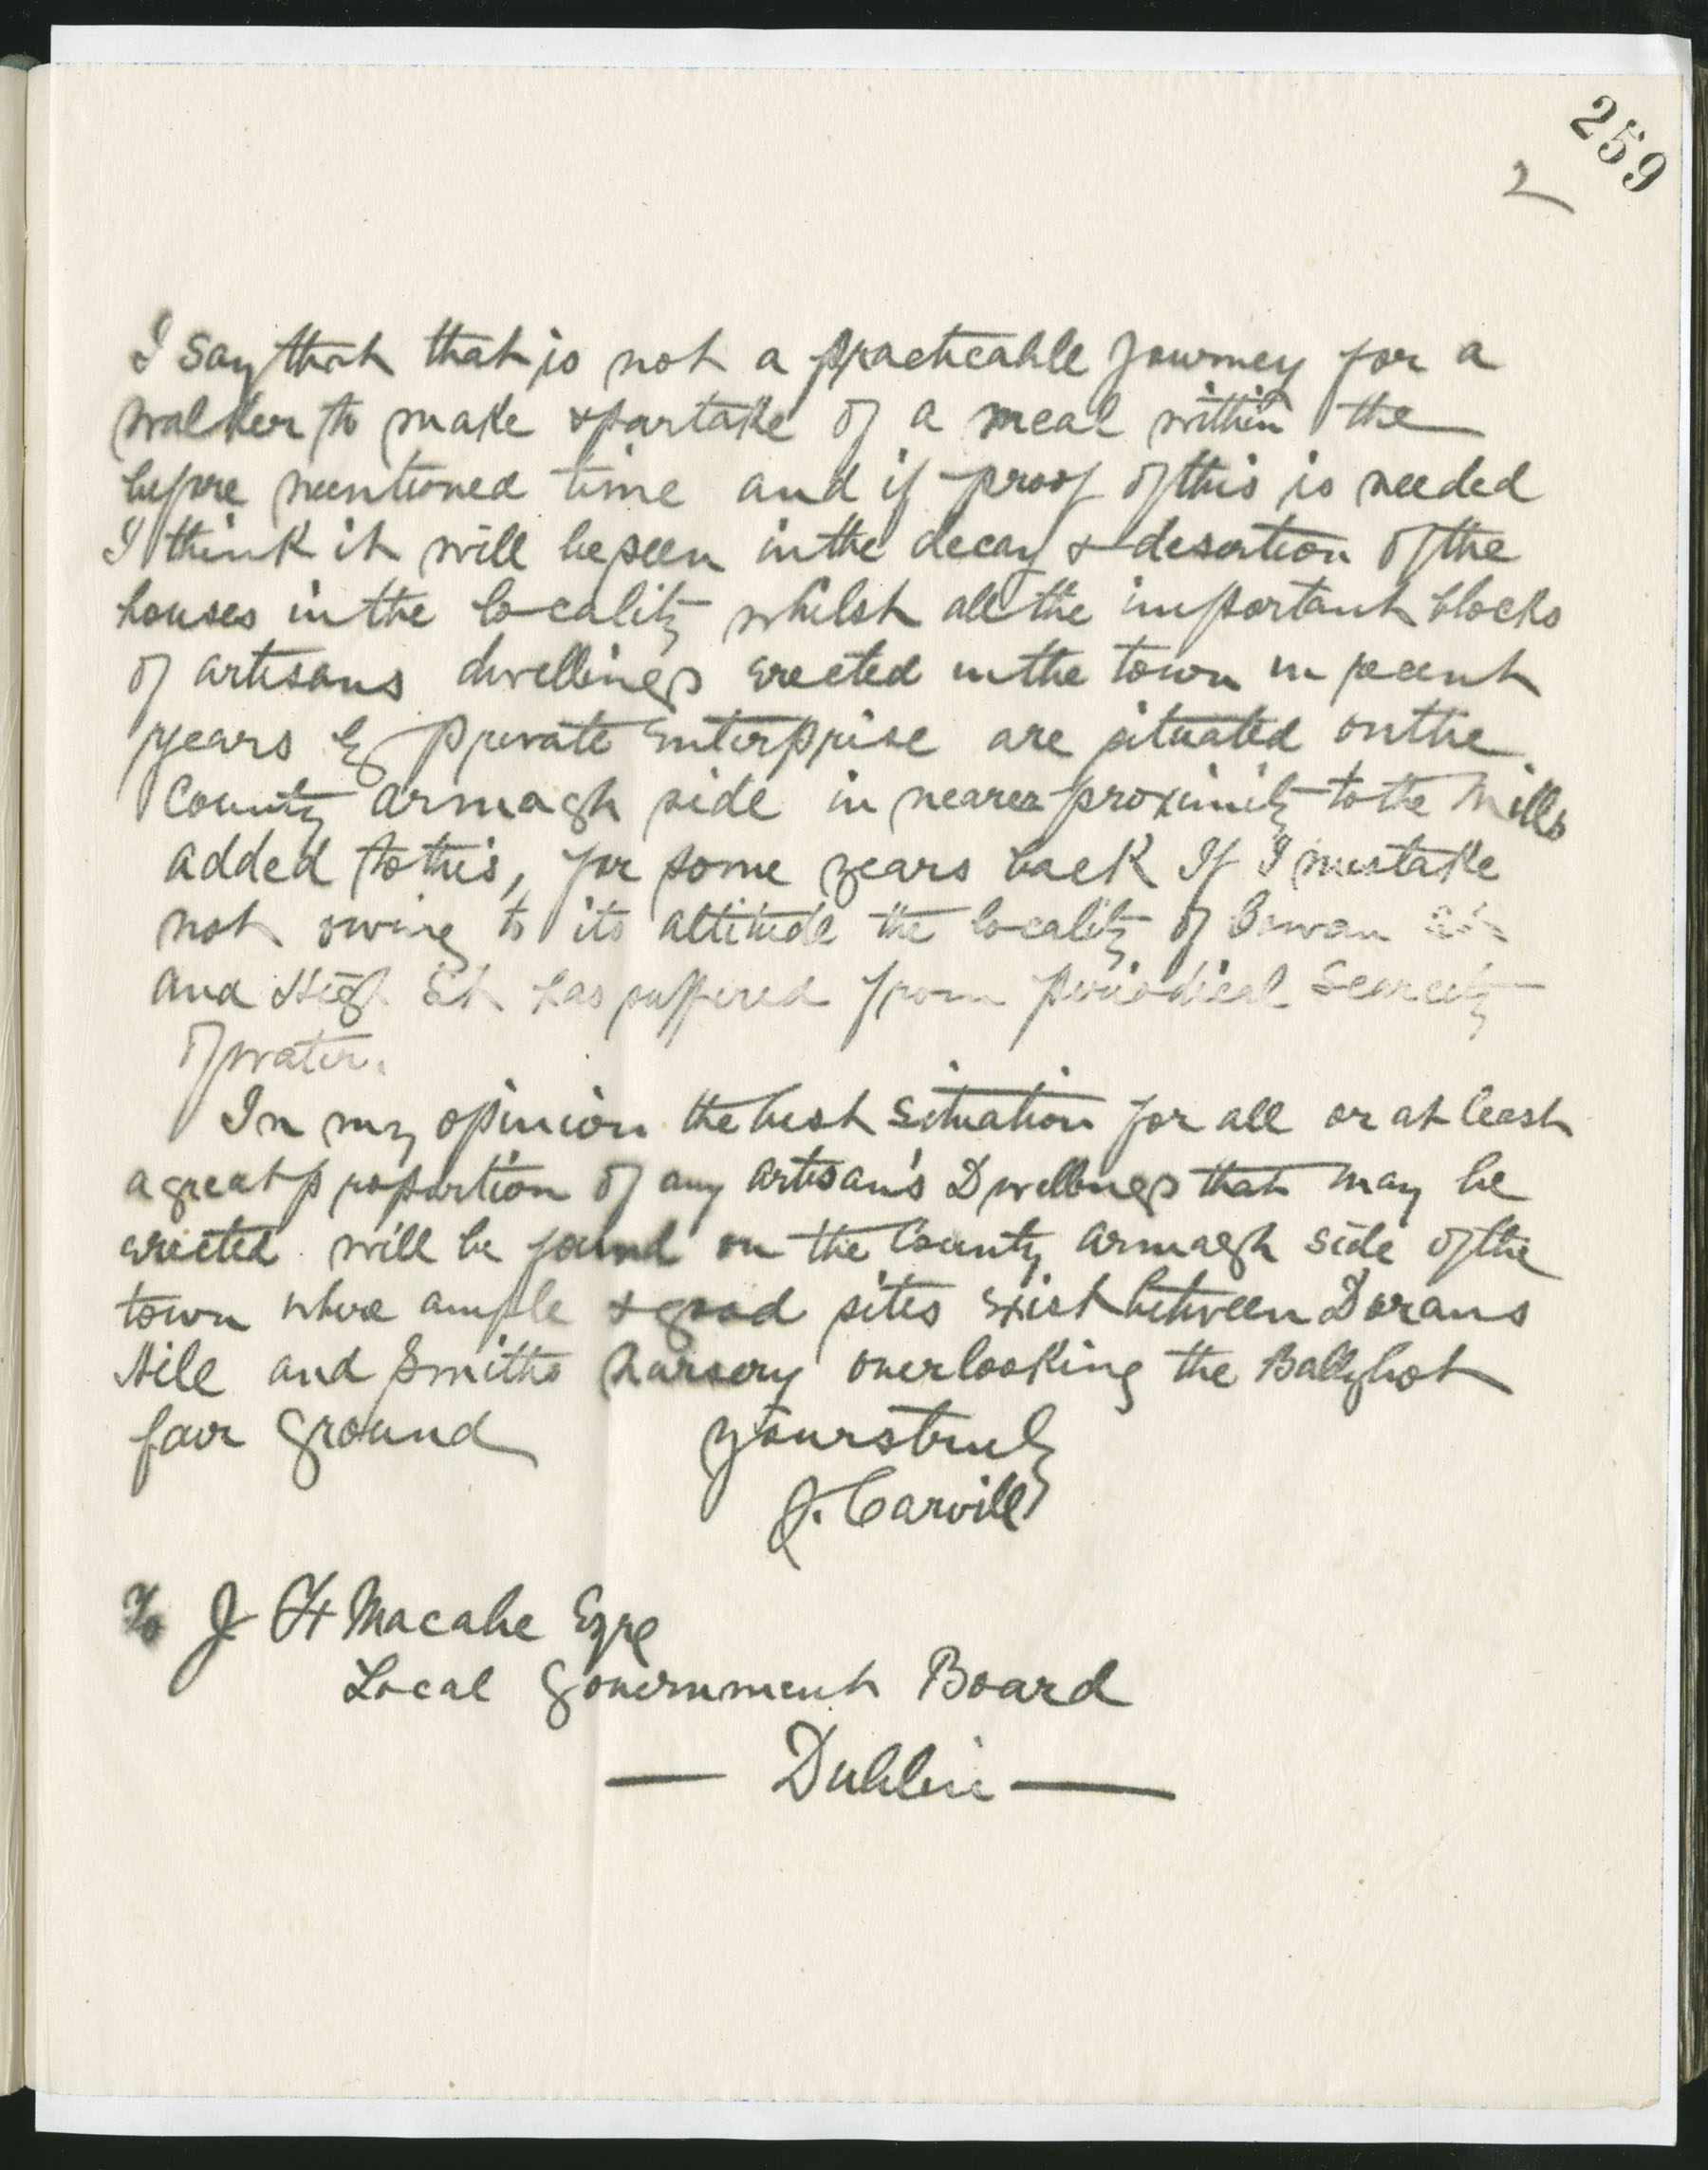 259
2
I say that that is not a practicable journey for a
walker to make & partake of a meal within the
before mentioned time and if proof of this is needed
I think it will be seen in the decay & desertion of the
houses in the locality whilst all the important blocks
of artisans dwellings erected in the town in recent
years by private enterprise are situated on the
County Armagh side in nearer proximity to the Mills
added to this, for some years back If I mistake
not owing to its altitude the locality of Cowan St
and High St has suffered from periodical Scarcity
of water.
In my opinion the best situation for all or at least
a great proportion of any artisan's Dwellings that may be
erected will be found on the County Armagh side of the
town where ample & good sites exist between Dorans
Hill and Smiths Nursery overlooking the Ballybot
fair ground
yours truly
J. Carvill
To J H Macabe Esqre
Local Government Board
— Dublin —